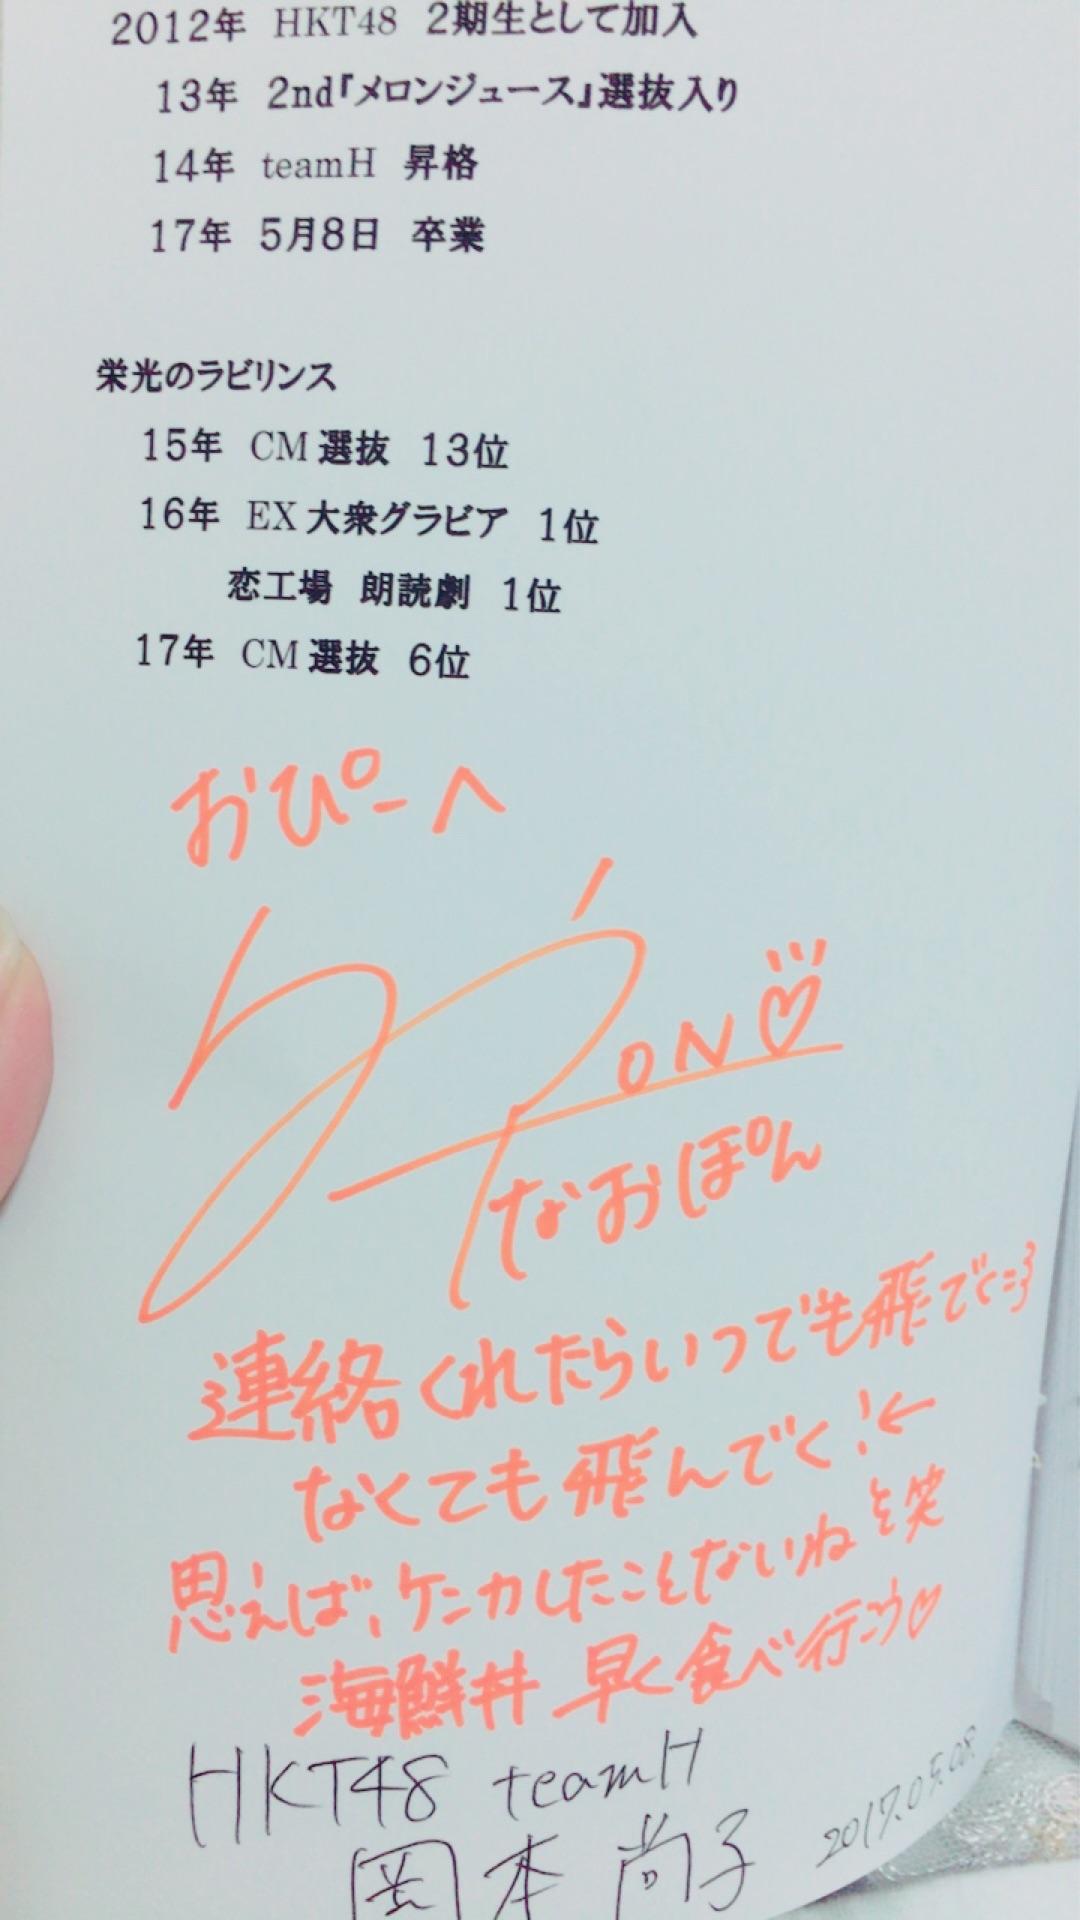 2012年 HKT48 2期生として加入
13年 2nd『メロンジュース』選抜入り
14年 teamH 昇格
17年 5月8日 卒業
栄光のラビリンス
15年 CM選抜 13位
16年 EX大衆グラビア 1位
恋工場 朗読劇 1位
17年 CM選抜 6位
おぴーへ
PON♡
なおぽん
連絡くれたらいつでも飛でく=3
なくても飛んでく!←
思えば、ケンカしたことないね 笑
海鮮丼 早く食べ行こう♡
HKT48 teamH
岡本 尚子
2017.05.08